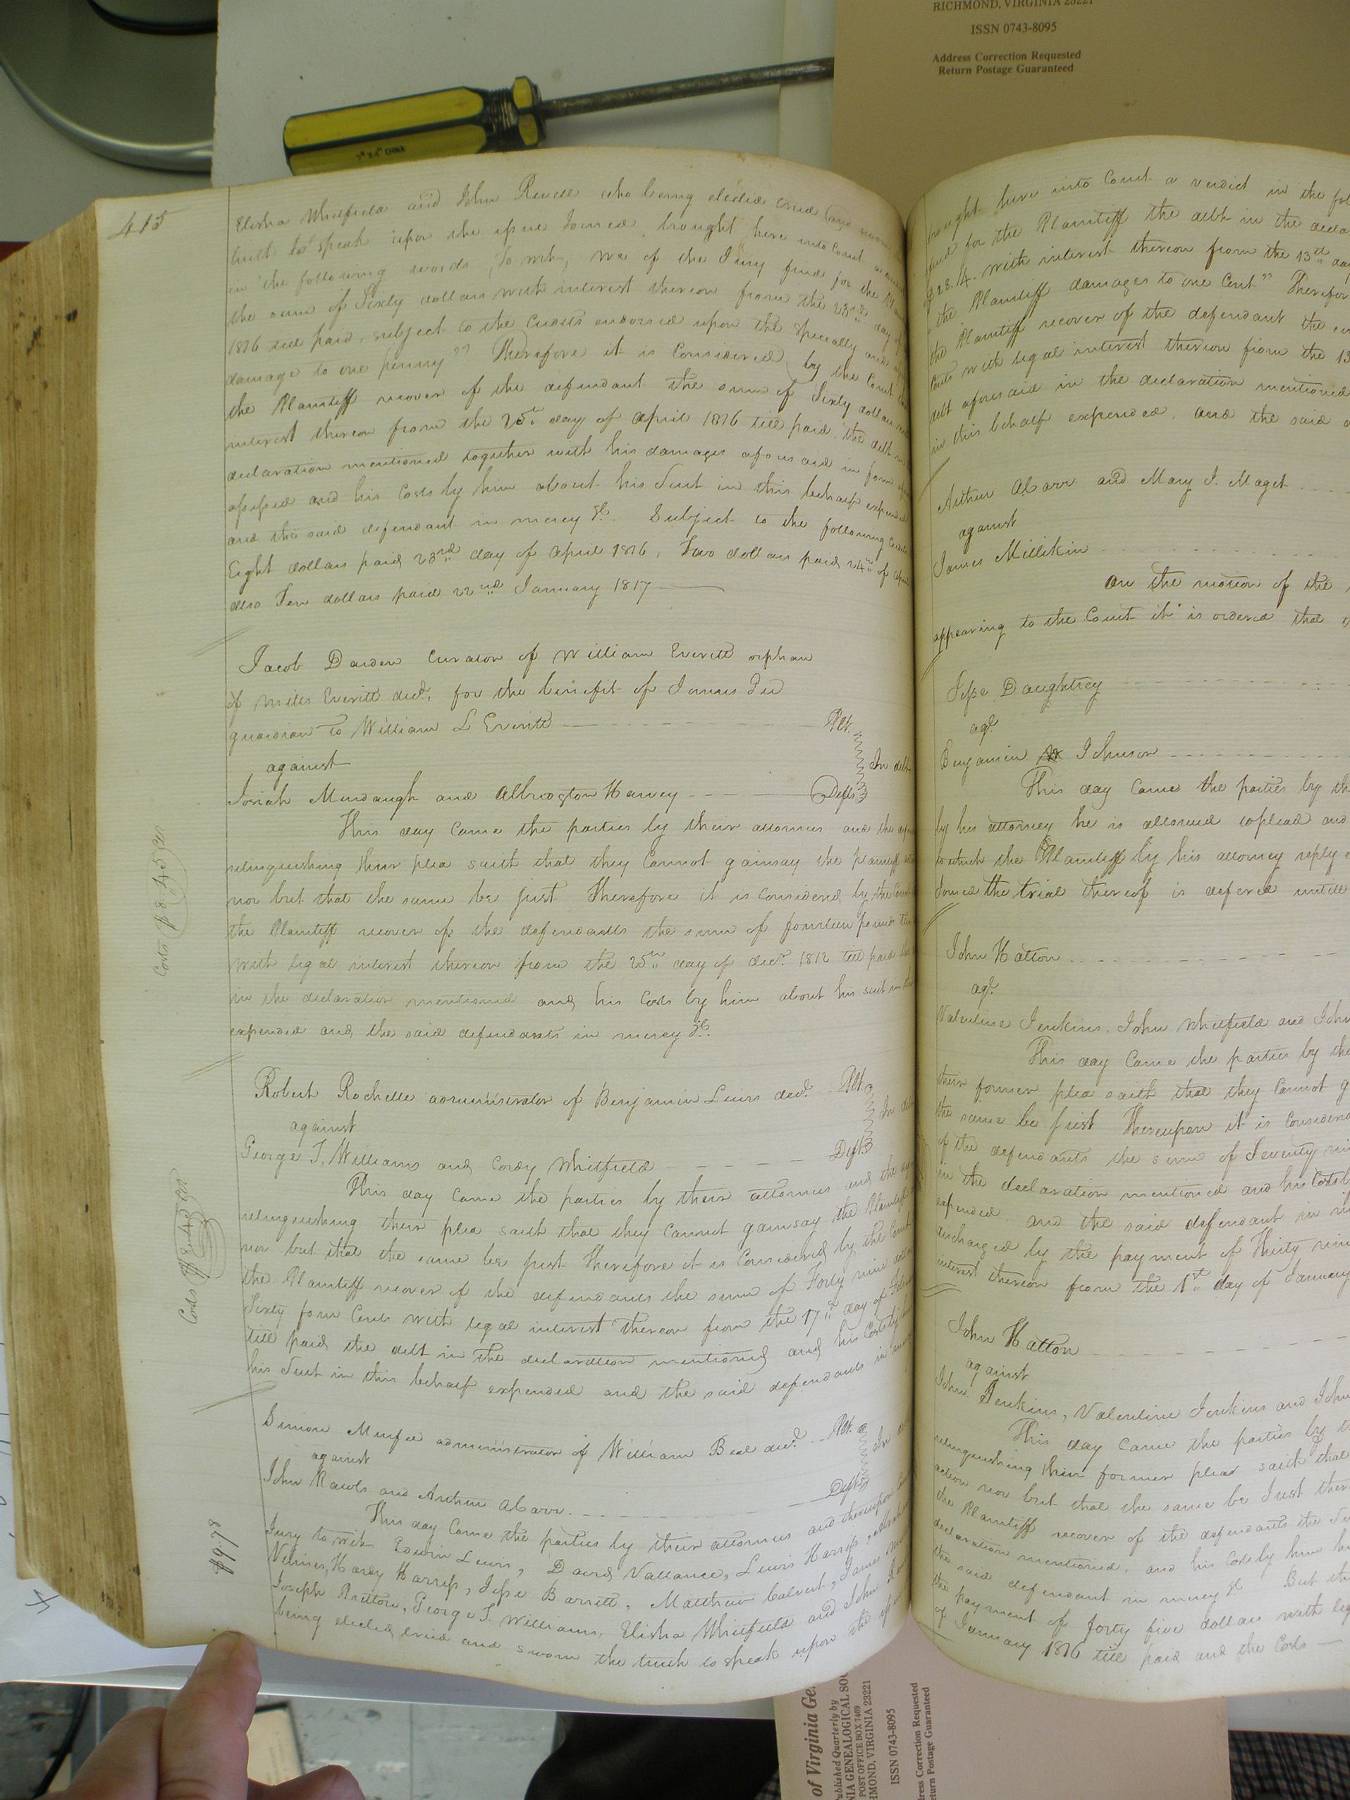 RICHMOND, VIRGINIA 23221
ISSN 0743-8095
Address Correction Requested
Return Postage Guaranteed
415
Elisha Whitfield and John Reese who being elected tried and sworn
truth to speak upon the issue Joined, brought here into Court a
in the following words to wit, we of the Jury find for the
the sum of Sixty dollars with interest thereon from the 23rd day of
1816 till paid, subject to the Credits endorsed upon the specialty and
damage to one penny" Therefore it is Considered by the Court
the Plaintiff recover of the defendant the sum of Sixty dollars
interest thereon from the day of April 1816 till paid the debt in
declaration mentioned together with his damages aforesaid in form
assessed and his Costs by him about his Suit in this behalf expended
and the said defendant in mercy &c. Subject to the following
Eight dollars paid 23rd day of April 1816, Two dollars paid 24th of
also Ten dollars paid 22nd January 1817
Jacob Darden Curator of William Everitt orphan
of Miles Everitt decd, for the benefit of James
guardian to William L Everitt Plt.
against In debt
Josiah Murdaugh and Allbrigton Harvey Defts
This day came the parties by their attornies and the
relinquishing their plea saith that they Cannot gainsay the Plaintiff
nor but that the same be just Therefore it is Considered by the Court
the Plaintiff recover of the defendants the sum of fourteen pounds
with legal interest thereon from the 25th day of decr. 1812 till paid
in the declaration mentioned and his Costs by him about his suit in
expended and the said defendants in mercy &c.
Costs $8.45
Robert Rochelle administrator of Benjamin Lewis decd. Plt.
against In
George T. Williams and Cordy Whitfield Defts
This day came the parties by their attornies and the
relinquishing their plea saith that they Cannot gainsay the Plaintiff
nor but that the same be just Therefore it is Considered by the Court
the Plaintiff recover of the defendants the sum of Forty nine
Sixty four Cents with legal interest thereon from the 17th day of
till paid the debt in the declaration mentioned and his Costs by
his Suit in this behalf expended and the said defendants in
Costs
Simon Murfee administrator of William Beal decd. Plt.
against
John Rawls and Arthur Carr Defts
This day Came the parties by their attornies and thereupon
Jury to wit Edwin Lewis, David Vallance, Lewis Harriss,
Hardy Harriss, Jesse Barrett, Matthew Calvert, James
Joseph Britton, George T. Williams, Elisha Whitfield and John
being elected tried and sworn the truth to speak upon the issue
$9.78
brought here into Court a verdict in the
for the Plaintiff the debt in the
28.4. with interest thereon from the 13th day
the Plaintiff damages to one Cent" Therefore
the Plaintiff recover of the defendant the
Cents with legal interest thereon from the 13
debt aforesaid in the declaration mentioned
in this behalf expended, and the said
Arthur Carr and Mary J. Maget
against
James Millikin
On the motion of the
appearing to the Court it is ordered that
Jesse Daughtrey
agt.
Benjamin Johnson
This day Came the parties by the
by his attorney he is allowed to plead and
to which the Plaintiff by his attorney reply
Joined the trial thereof is defered untill
John Hatton
agt.
Valentine Jenkins, John Whitfield and John
This day Came the parties by the
their former plea saith that they Cannot
the same be just Thereupon it is Considered
of the defendants the sum of Seventy
in the declaration mentioned and his Costs
expended and the said defendant in
discharged by the payment of Thirty nine
interest thereon from the 1st day of January
John Hatton
against
John Jenkins, Valentine Jenkins and John
This day Came the parties by
relinquishing their former pleas saith that
action nor but that the same be Just
the Plaintiff recover of the defendants the
declaration mentioned, and his Costs by him
the said defendant in mercy &c. But
the payment of forty five dollars with
of January 1816 till paid and the Costs
of Virginia
Published Quarterly by
POST OFFICE BOX 7469
RICHMOND, VIRGINIA 23221
ISSN 0743-8095
Address Correction Requested
Return Postage Guaranteed